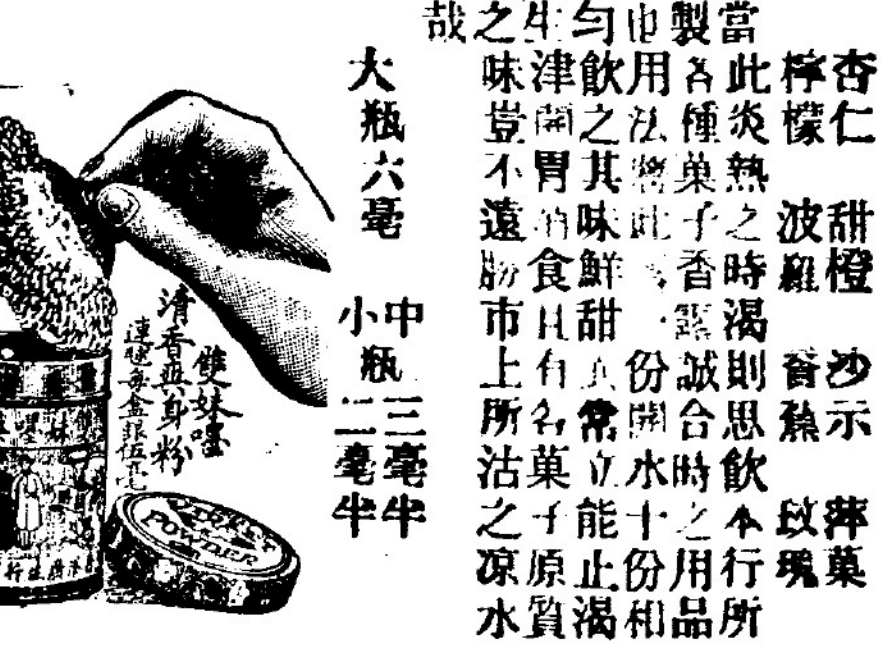 杏仁　甜橙　沙示　萍菓
檸檬　波羅　香蕉　玫瑰
當此炎熱之時渴則思飲本行所
製各種菓子香露誠合時之用品
也用法將此露一份開水十份相
勻飲之其味鮮甜異常立能止渴
生津開胃消食且有名菓子原質
之味豈不遠勝市上所沽之凉水
哉
大瓶六毫
中瓶三毫半
小瓶二毫半
雙妹嚜
清香爽身粉
連號每盒銀伍毫
POWDER